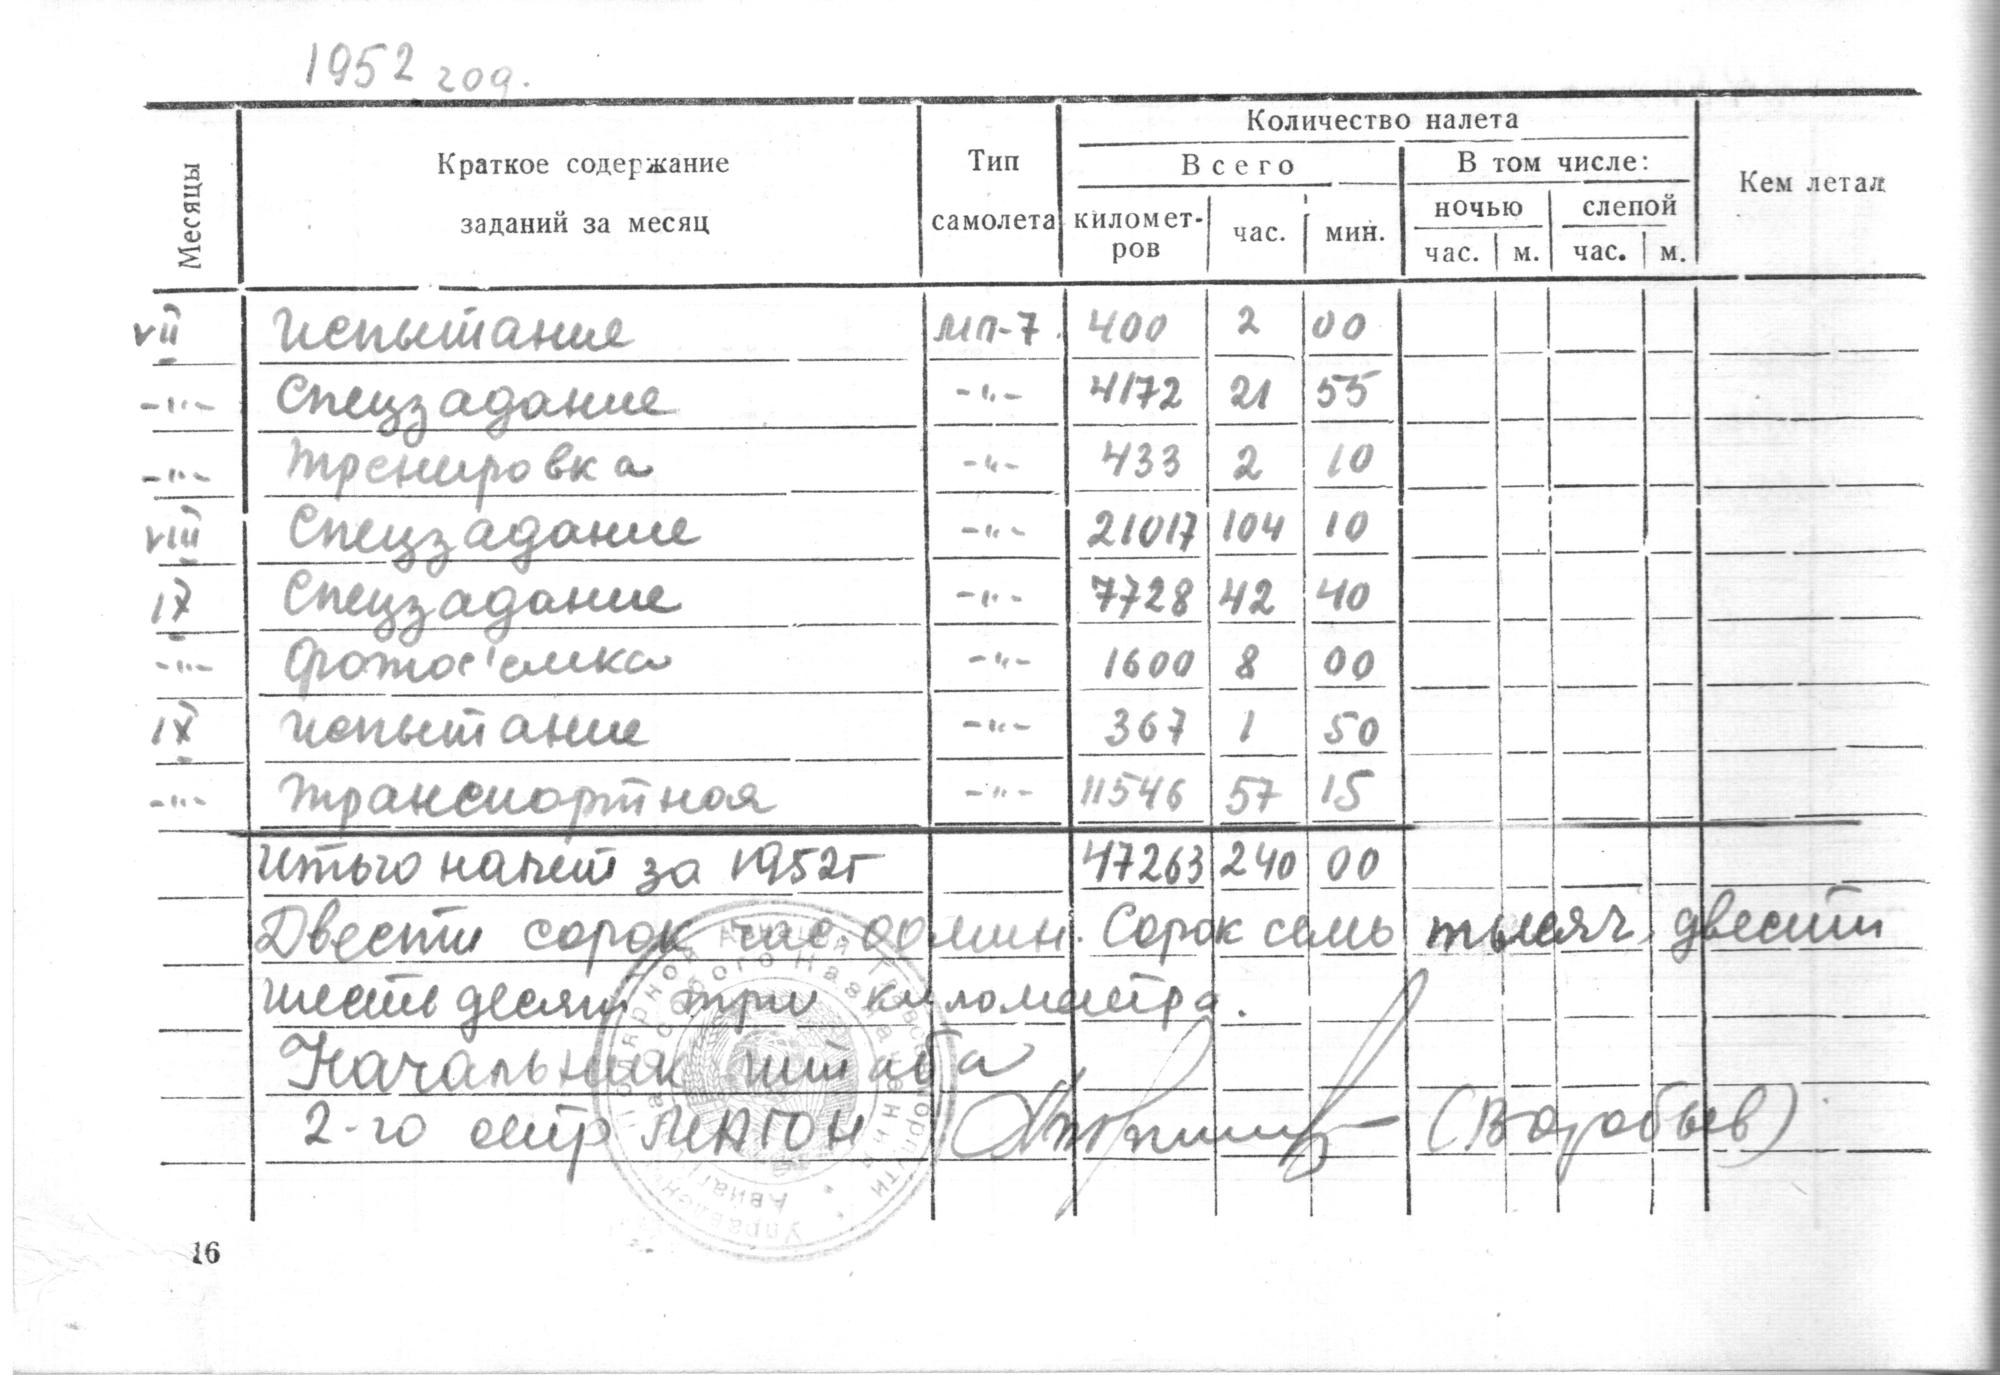 1952 год.
Месяцы
Краткое содержание заданий за месяц
Тип самолета
Количество налета
Всего
В том числе:
Кем летал
километ-ров
час.
мин.
ночью
слепой
час. м. час. м.
VII Испытание МП-7. 400 2 00
-"- Спецзадание -"- 4172 21 55
-"- Тренировка -"- 433 2 10
VIII Спецзадание -"- 21017 104 10
IX Спецзадание -"- 7728 42 40
-"- Фотос'емка -"- 1600 8 00
IX Испытание -"- 367 1 50
-"- Транспортная -"- 11546 57 15
Итого налет за 1952г 47263 240 00
Двести сорок час. 00 мин. Сорок семь тысяч двести
шестьдесят три километра.
Начальник штаба
2-го отр МАГОН (Воробьев)
Полярной Авиации Главсевморпути
Особого Назначения
Управление
16